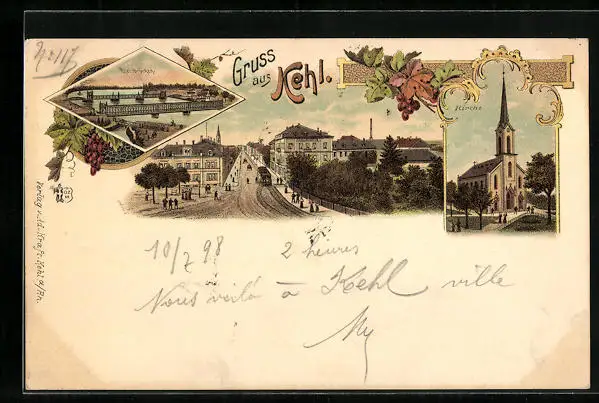 Gruss
aus
Kehl.
Kirche
Verlag v. Ad. Kraft, Kehl a/Rh.
10/7 98 2 heures
Nous voilà à Kehl ville